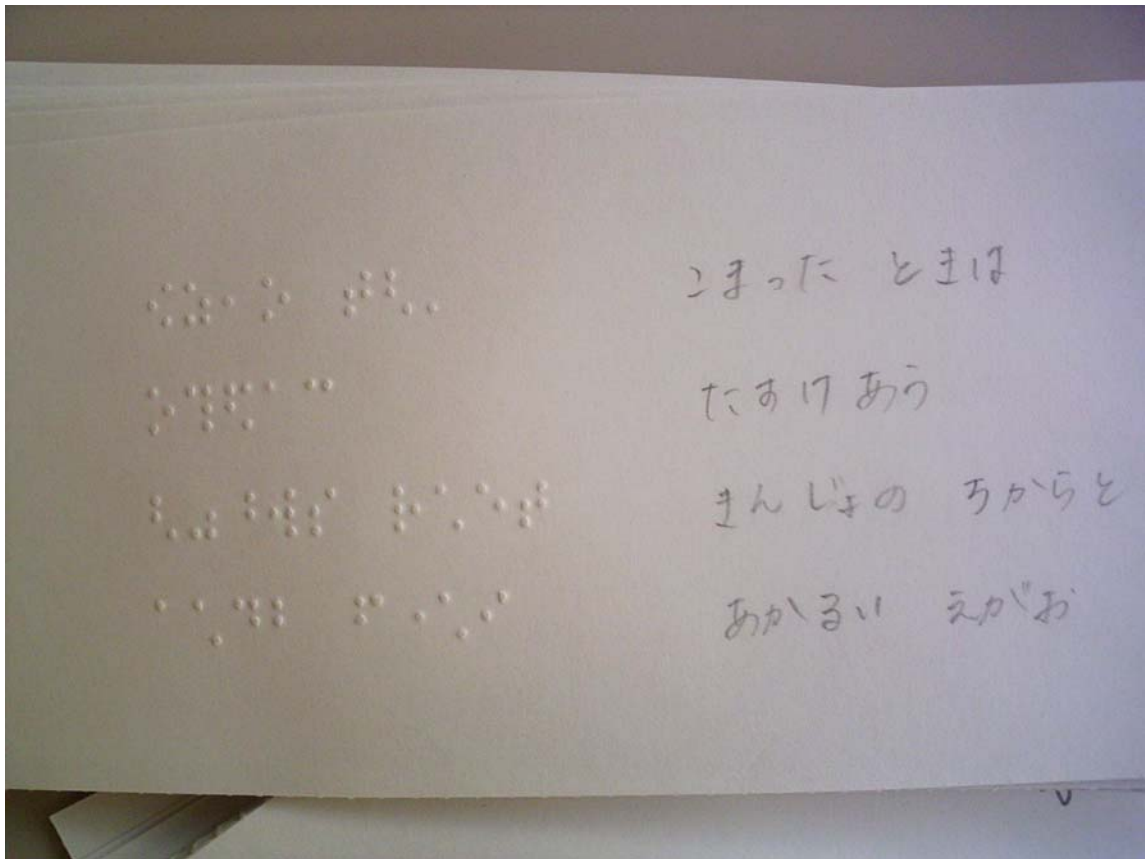 こまった ときは
たすけあう
きんじょの ちからと
あかるい えがお